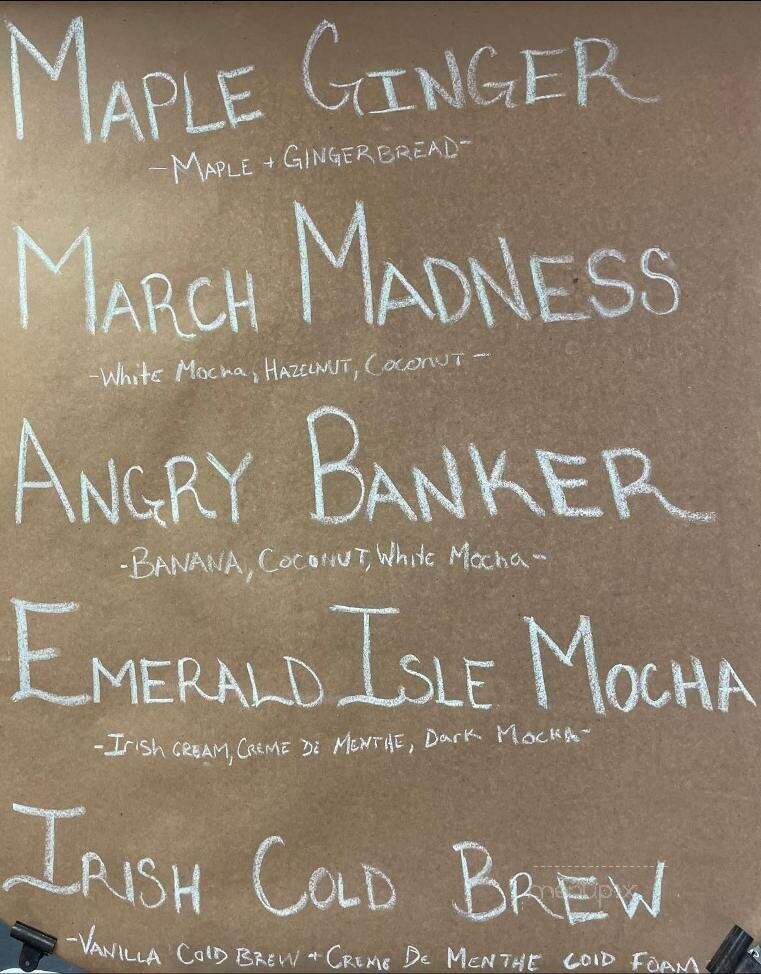 MAPLE GINGER
-MAPLE + GINGERBREAD-
MARCH MADNESS
-White Mocha, HAZELNUT, COCONUT-
ANGRY BANKER
-BANANA, COCONUT, White Mocha-
EMERALD ISLE MOCHA
-Irish CREAM, CREME DE MENTHE, Dark MOCHA-
IRISH COLD BREW
menupix
-VANILLA COLD BREW + CREME DE MENTHE COLD FOAM